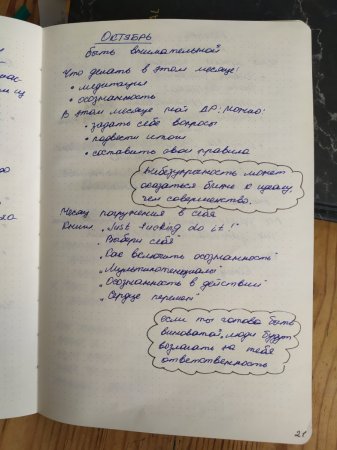 Октябрь
быть внимательной
Что делать в этом месяце:
• медитация
• осознанность
В этом месяце мой ДР. Можно:
• задать себе вопросы
• подвести итоги
• составить свои правила
небезупречность может
оказаться ближе к идеалу,
чем совершенство.
Месяц погружения в себя
Книги „Just fucking do it!"
„Выбери себя"
„Где включить осознанность"
„Мультипотенциалы"
„Осознанность в действии"
„Сердце перемен"
если ты готова быть
виноватой, люди будут
возлагать на тебя
ответственность
21